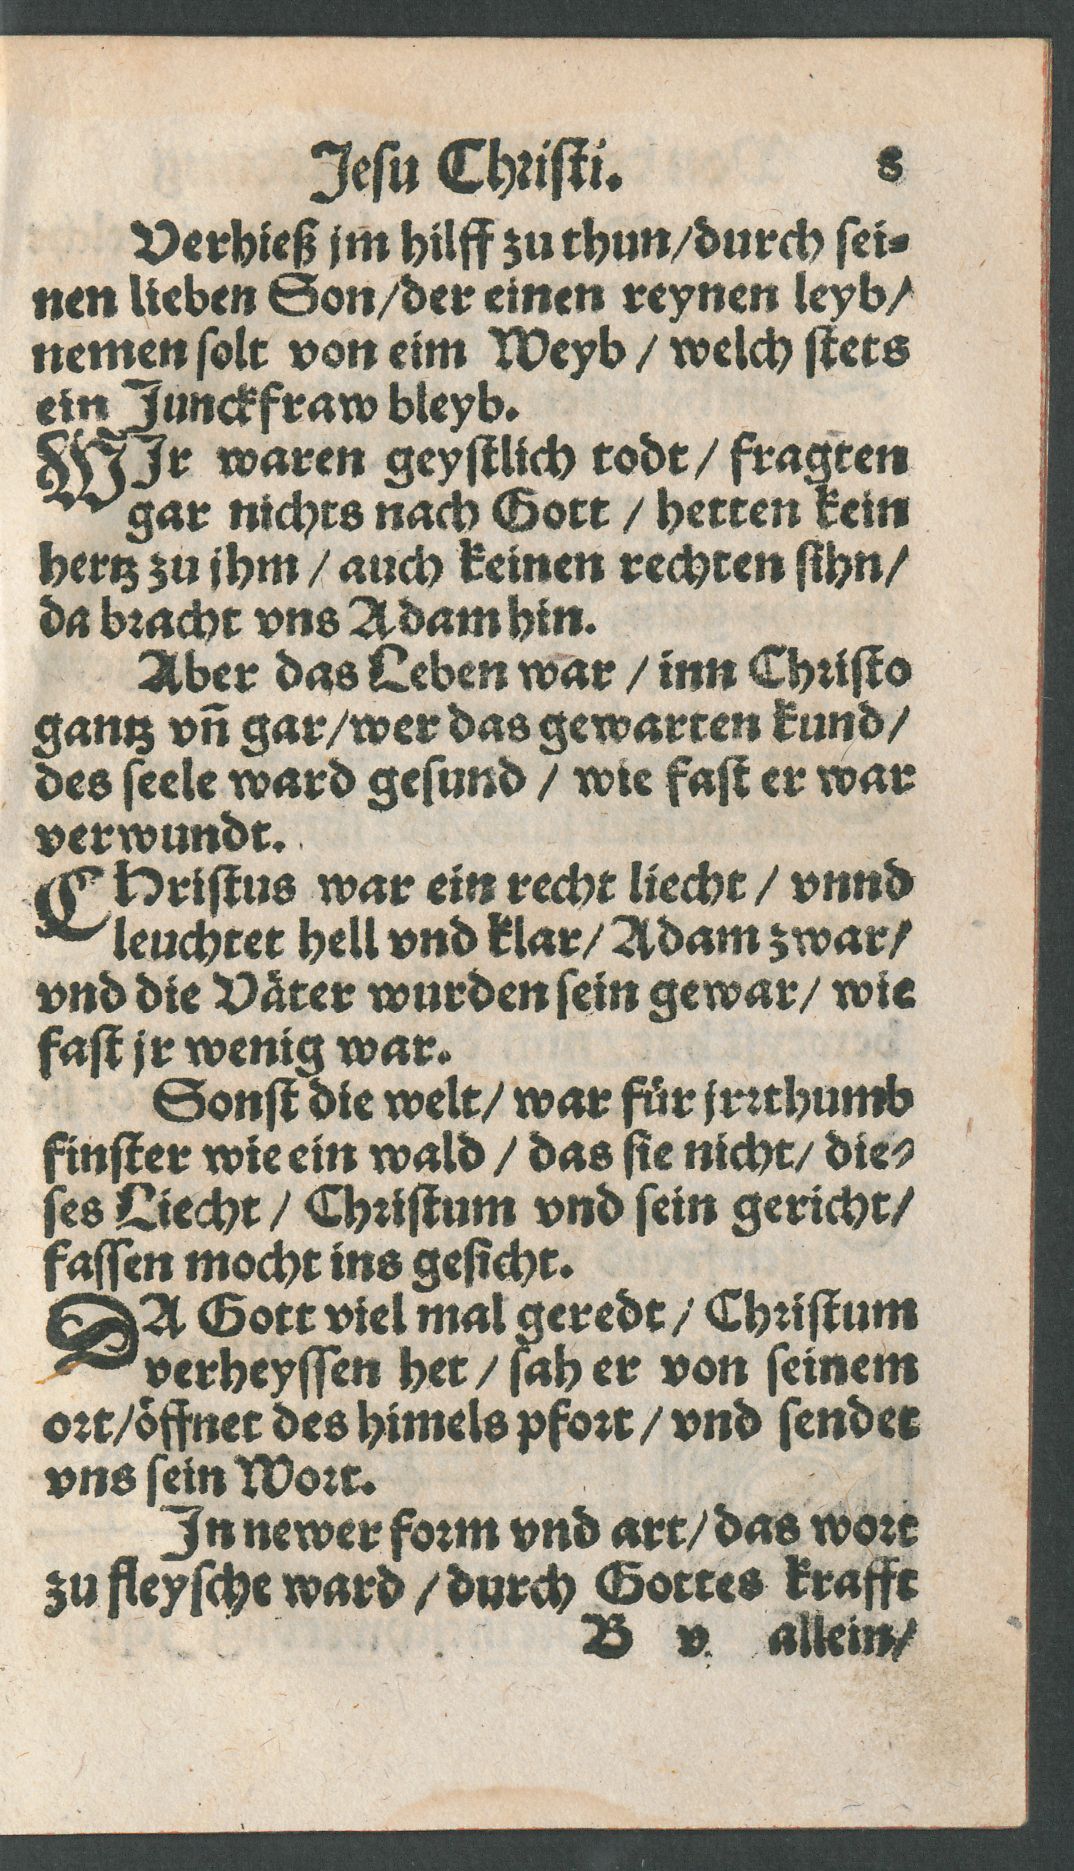 Jesu Christi. 8
Verhieß jm hilff zu thun/durch sei-
nen lieben Son/der einen reynen leyb/
nemen solt von eim Weyb / welch stets
ein Junckfraw bleyb.
WIr waren geystlich todt / fragten
gar nichts nach Gott / hetten kein
hertz zu jhm / auch keinen rechten sihn/
da bracht vns Adam hin.
Aber das Leben war / inn Christo
gantz vñ gar/wer das gewarten kund/
des seele ward gesund / wie fast er war
verwundt.
CHristus war ein recht liecht / vnnd
leuchtet hell vnd klar/ Adam zwar/
vnd die Väter wurden sein gewar/ wie
fast jr wenig war.
Sonst die welt/ war für jrrthumb
finster wie ein wald / das sie nicht/ die-
ses Liecht / Christum vnd sein gericht/
fassen mocht ins gesicht.
DA Gott viel mal geredt / Christum
verheyssen het / sah er von seinem
ort/öffnet des himels pfort / vnd sendet
vns sein Wort.
In newer form vnd art/ das wort
zu fleysche ward / durch Gottes krafft
B v. allein/